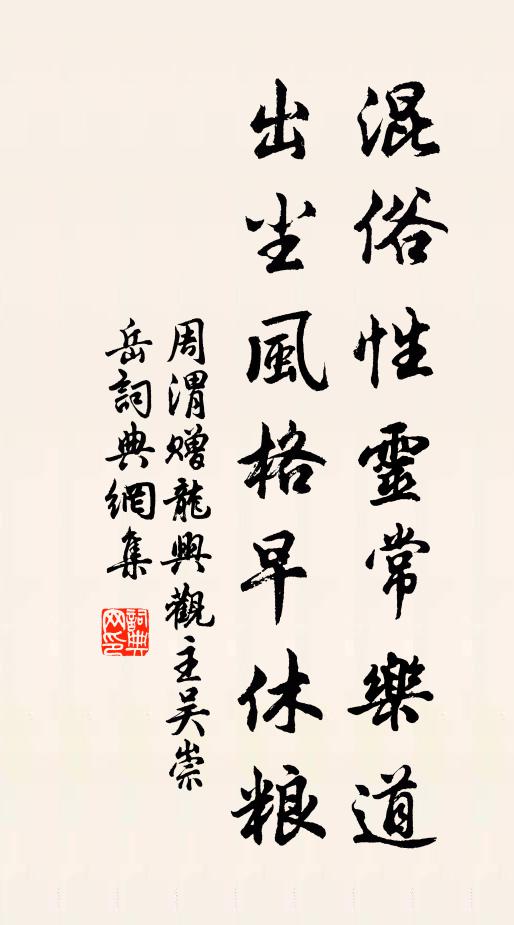 混俗性靈常樂道
出尘風格早休粮
周渭赠龍興觀主吴崇
岳詞典網集
詞典
网印